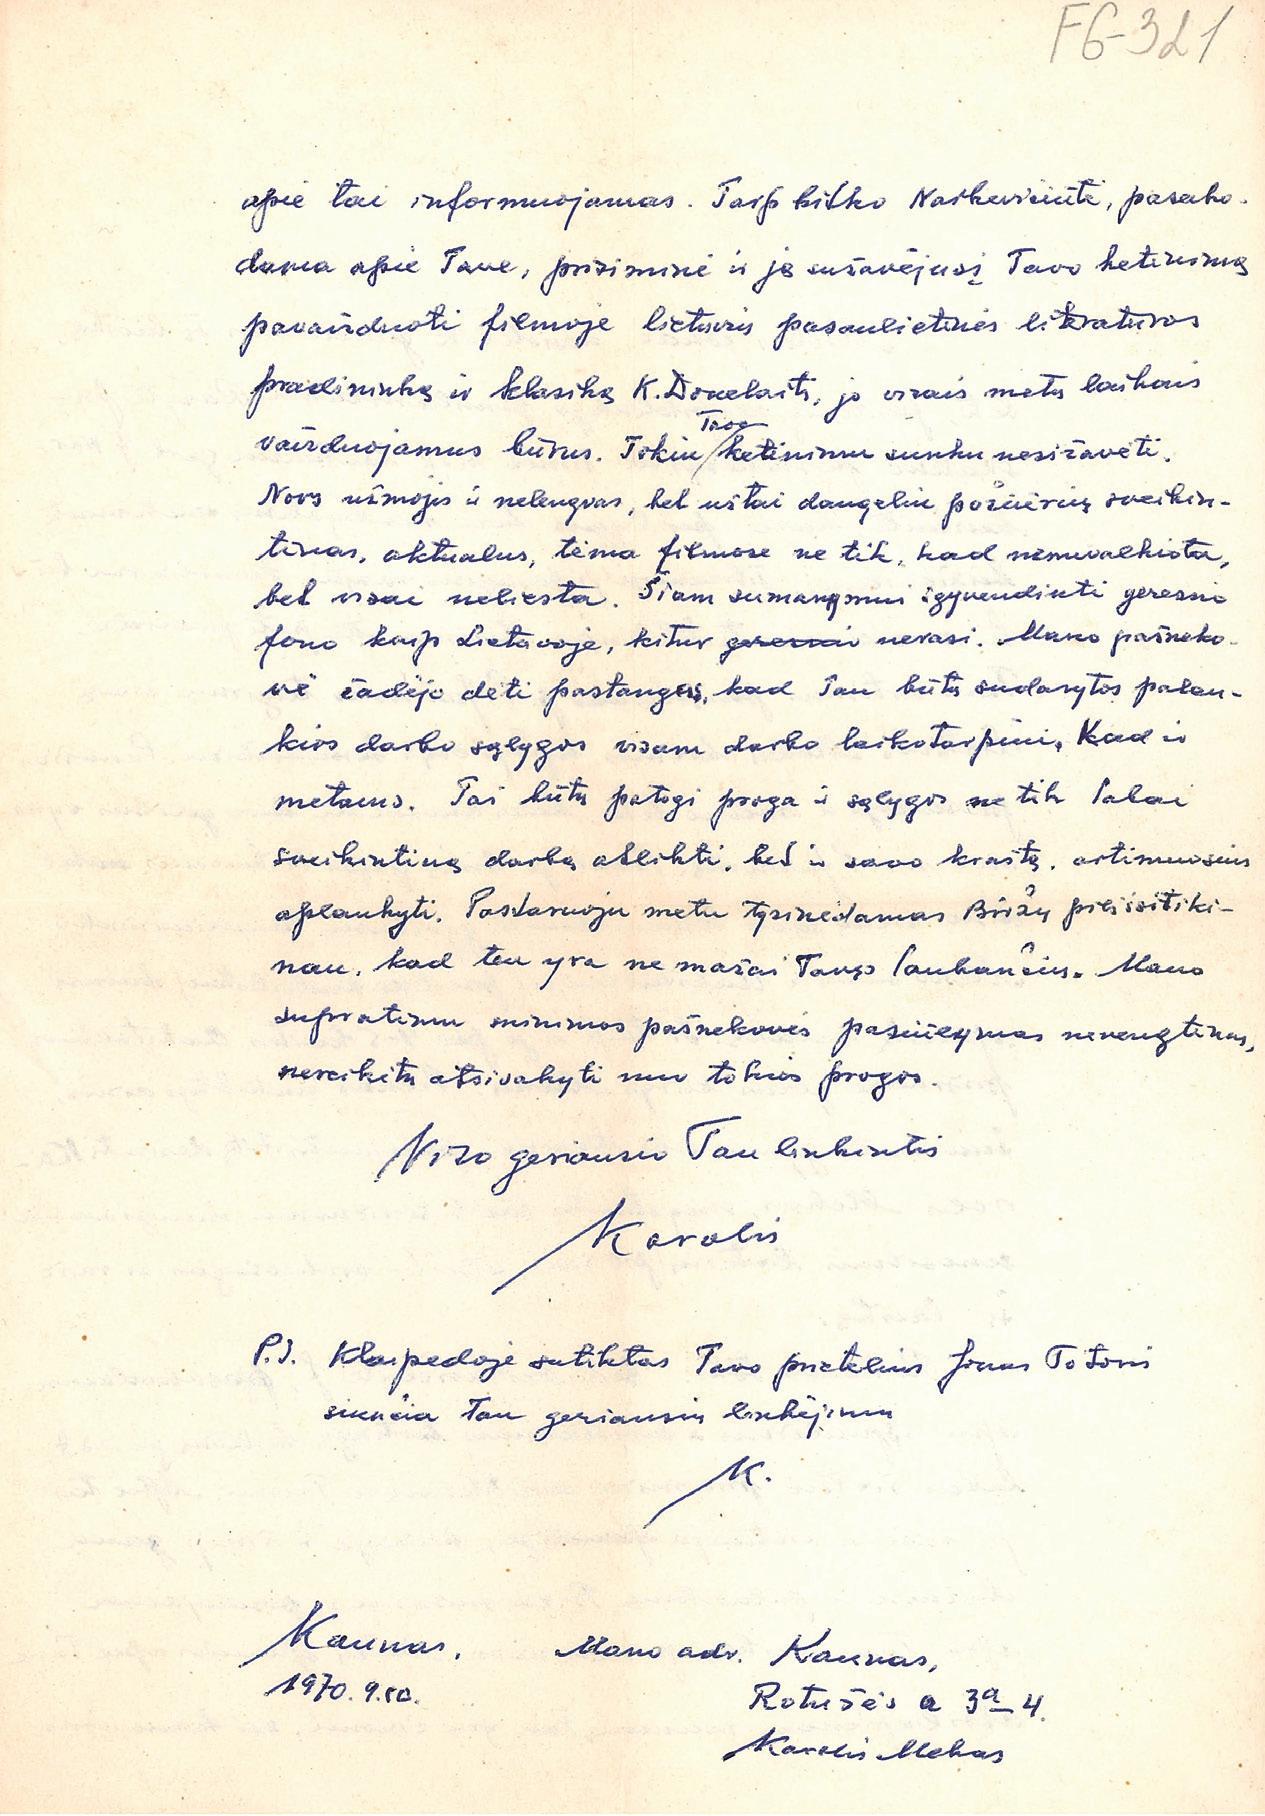 F6-321
apie tai informuojamas. Tarp kitko Narkevičiūtė, pasako-
dama apie Tave, prisiminė ir ję sužavėjusį Tavo ketinimą
pavaizduoti filmoje lietuvių pasaulietinės literatūros
pradininką ir klasiką K. Donelaitį, jo visais metų laikais
vaizduojamus būrus. Tokiu Tavo ketinimu sunku nesižavėti.
Nors užmojis ir nelengvas, bet užtai daugeliu požiūrių sveikin-
tinas, aktualus, tema filmose ne tik, kad nenuvalkiota,
bet visai neliesta. Šiam sumanymui įgyvendinti geresnio
fono kaip Lietuvoje, kitur geresnio nerasi. Mano pašneko-
vė žadėjo dėti pastangas, kad Tau būtų sudarytos palan-
kios darbo sąlygos visam darbo laikotarpiui, Kad ir
metams. Tai būtų patogi proga ir sąlygos ne tik labai
sveikintiną darbą atlikti, bet ir savo kraštą, artimuosius
aplankyti. Pastaruoju metu tyrinėdamas Biržų pilį įsitiki-
nau, kad ten yra ne mažai Tavęs laukančių. Mano
supratimu minimos pašnekovės pasiūlymas nevengtinas,
nereikėtų atsisakyti nuo tokios progos.
Viso geriausio Tau linkintis
Karolis
P.S. Klaipėdoje sutiktas Tavo prietelius Jonas
siunčia Tau geriausių linkėjimų
K.
Kaunas,
1970.9.10.
Mano adr. Kaunas,
Rotušės a 3a-4.
Karolis Mekas